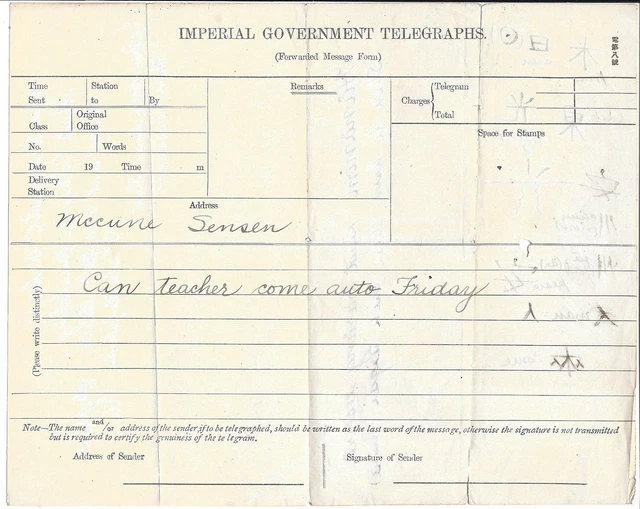 IMPERIAL GOVERNMENT TELEGRAPHS.
(Forwarded Message Form)
電第八號
Time Station
Sent to By
Original
Class Office
No. Words
Date 19 Time m
Delivery
Station
Remarks
Charges Telegram
Total
Space for Stamps
Address
Mccune Sensen
Can teacher come auto Friday
(Please write distinctly)
Note—The name and/or address of the sender, if to be telegraphed, should be written as the last word of the message, otherwise the signature is not transmitted
but is required to certify the genuineness of the telegram.
Address of Sender Signature of Sender